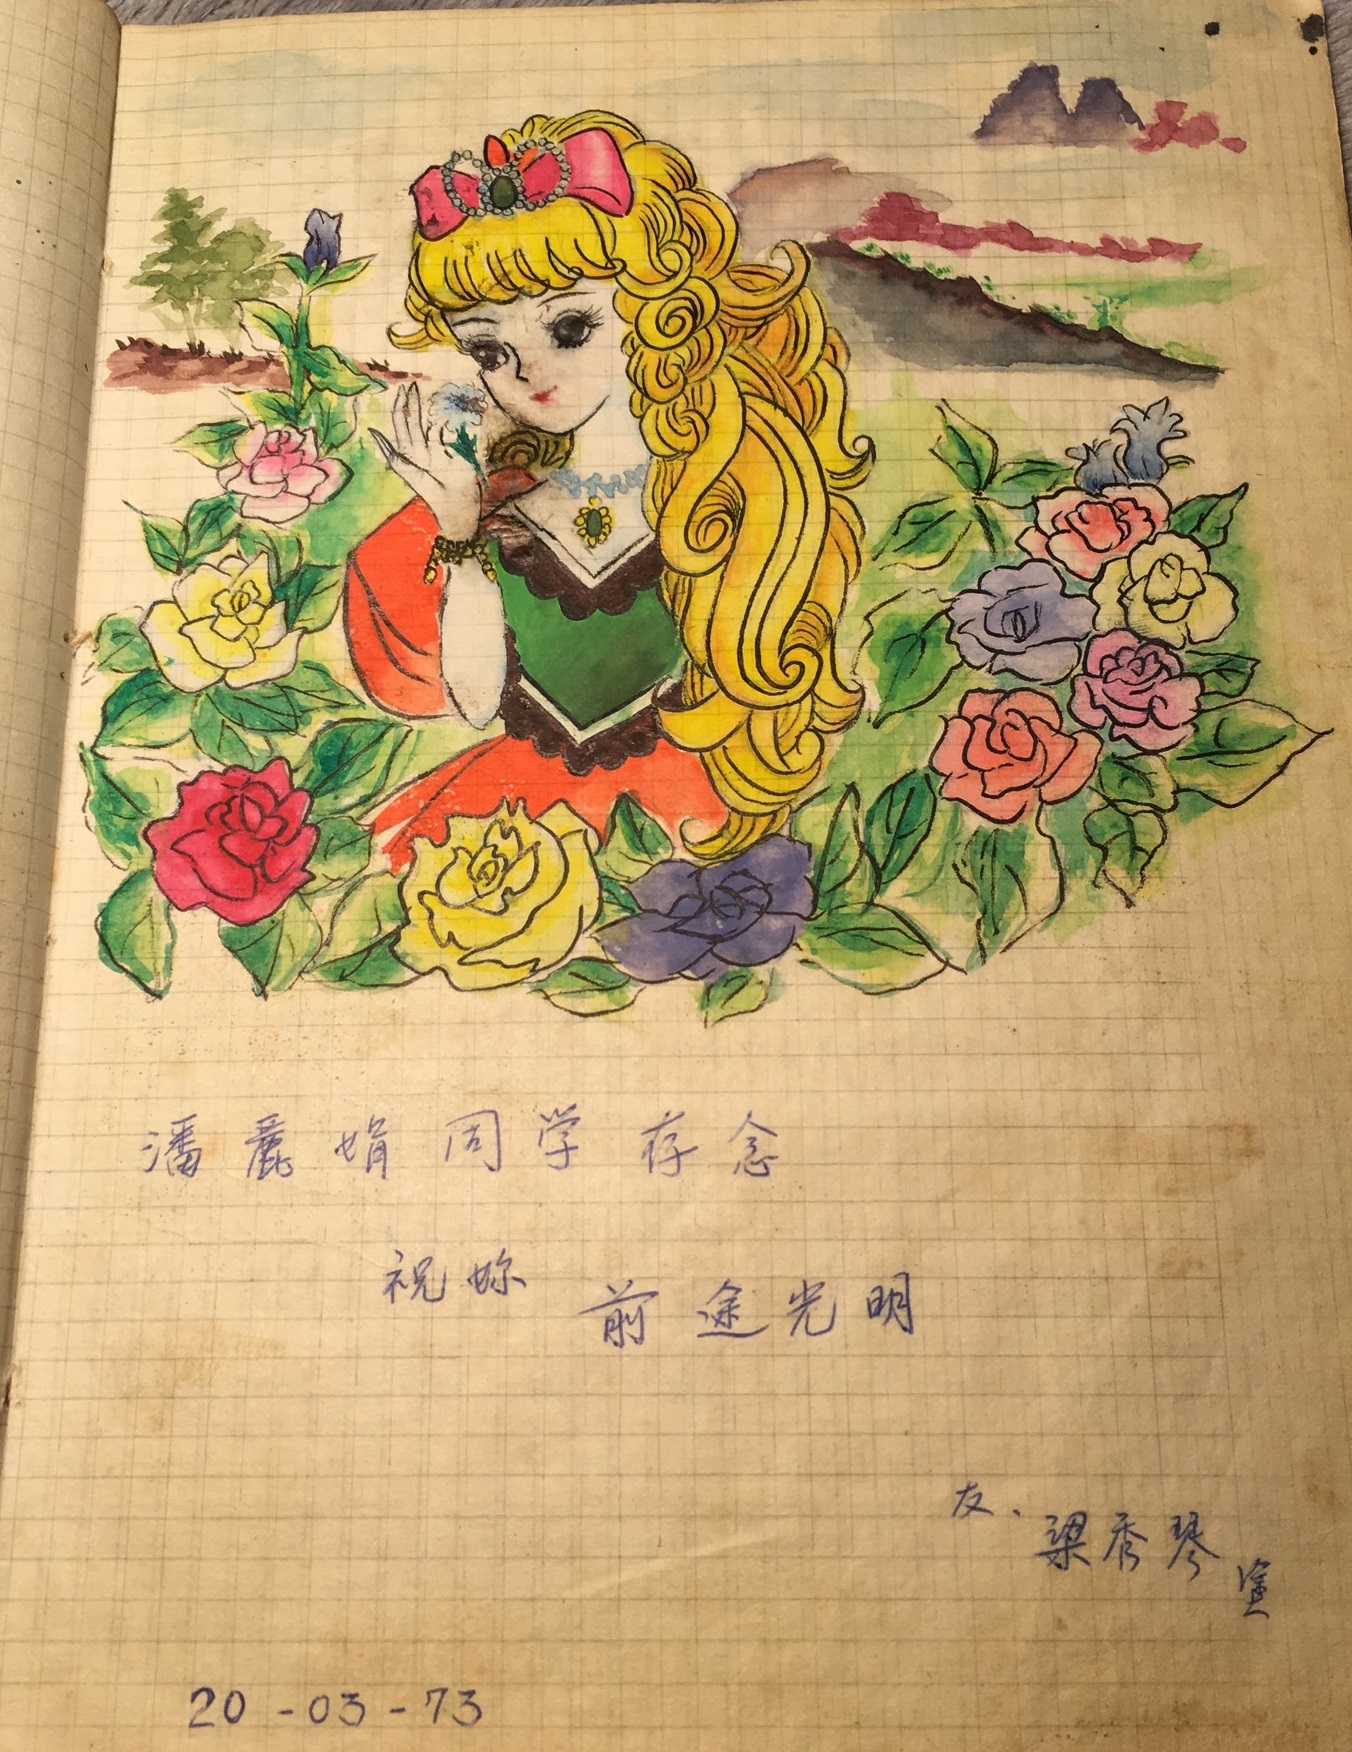 潘麗娟同学存念
祝妳 前途光明
友、梁秀琴
20-03-73